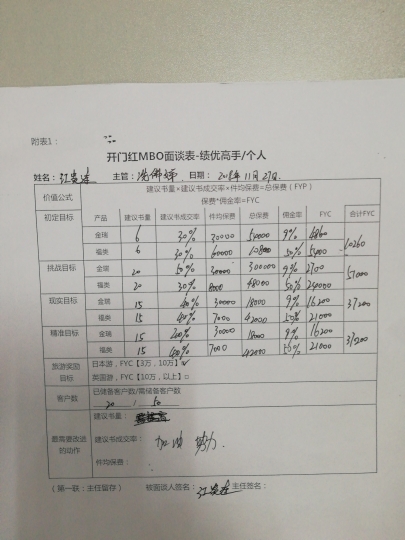 附表1：
开门红MBO面谈表-绩优高手/个人
姓名： 主管： 日期：2018年11月27日
价值公式 建议书量×建议书成交率×件均保费=总保费（FYP）
保费*佣金率=FYC
初定目标 产品 建议书量 建议书成交率 件均保费 总保费 佣金率 FYC 合计FYC
金瑞 6 30% 30000 54000 9% 4860 10260
福类 6 30% 10800 50% 5400
挑战目标 金瑞 20 50% 30000 300000 9% 2700 51000
福类 20 30% 8000 48000 50% 24000
现实目标 金瑞 15 40% 30000 18000 9% 16200 37200
福类 15 40% 7000 42000 50% 21000
精准目标 金瑞 15 30000 18000 9% 16200 37200
福类 15 40% 7000 42000 50% 21000
旅游奖励目标 日本游，FYC【3万，10万】
英国游，FYC【10万，以上】□
客户数 已储备客户数/需储备客户数
20 / 50
最需要改进的动作 建议书量：
建议书成交率： 加油 努力.
件均保费：
（第一联：主任留存） 被面谈人签名： 主任签名：